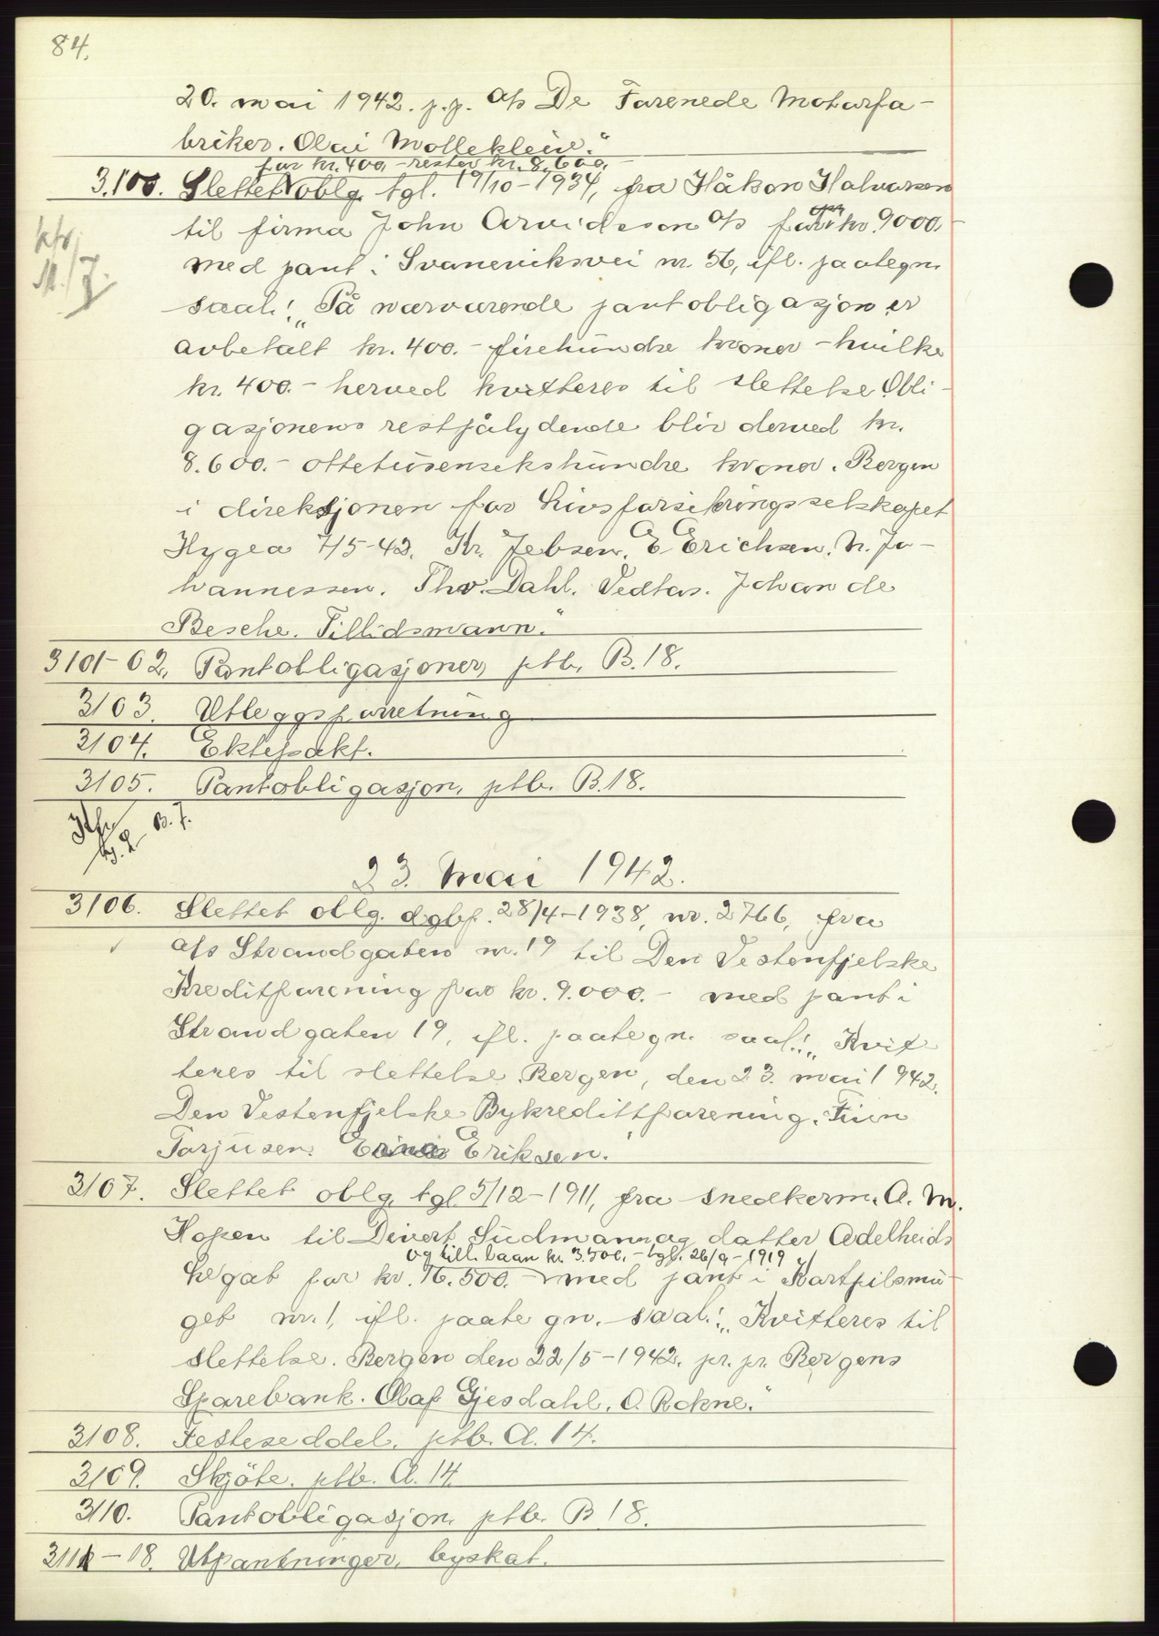 84.
20. mai 1942. p.p. A/s De Forenede Motorfa-
briker. Olai Mollekleiv."
for kr. 400,- rester kr. 8.600,-
3.100. Slettet oblg. tgl. 19/10-1934, fra Håkon Halvorsen
til firma John Arvidsson A/s for kr. 9000,-
med pant i Svaneviksvei nr. 56, ifl. paategn.
saal.: "På nærværende pantobligasjon er
avbetalt kr. 400.- firehundre kroner - hvilke
kr. 400.- herved kvitteres til slettelse. Obli-
gasjonens restpålydende blir derved kr.
8.600.- ottetusensekshundre kroner. Bergen
i direksjonen for Livsforsikringsselskapet
Hygea 7/5-42. Kr. Jebsen. E Erichsen. N. Jo-
hannessen. Thv. Dahl. Vedtas. Johan de
Besche. Tillidsmann."
3101-02. Pantobligasjoner, ptb. B.18.
3103. Utleggsforretning
3104. Ektepakt.
3105. Pantobligasjon, ptb. B.18.
B. 7.
23. Mai 1942.
3106. Slettet oblg. dgbf. 28/4-1938, nr. 2766, fra
A/s Strandgaten nr. 19 til Den Vestenfjelske
Kreditforening for kr. 9.000.- med pant i
Strandgaten 19, ifl. paategn. saal.: "Kvit-
teres til slettelse. Bergen, den 23. mai 1942.
Den Vestenfjelske Bykredittforening. Finn
Torjusen. Eriksen."
3107. Slettet oblg. tgl. 5/12-1911, fra snedkerm. A. M.
Hopen til Divert Sudmann og datter Adelheids
og till. laan kr. 3.500,- tgl. 26/9-1919
Legat for kr. 16.500.- med pant i Kortpilsmu-
get nr. 1, ifl. paategn. saal.: "Kvitteres til
slettelse. Bergen den 22/5-1942. pr. pr. Bergens
Sparebank. Olaf Gjesdahl. O. Rokne."
3108. Festeseddel. ptb. A. 14.
3109. Skjöte. ptb. A. 14.
3110. Pantobligasjon. ptb. B 18.
3111-18. Utpantninger, byskat.